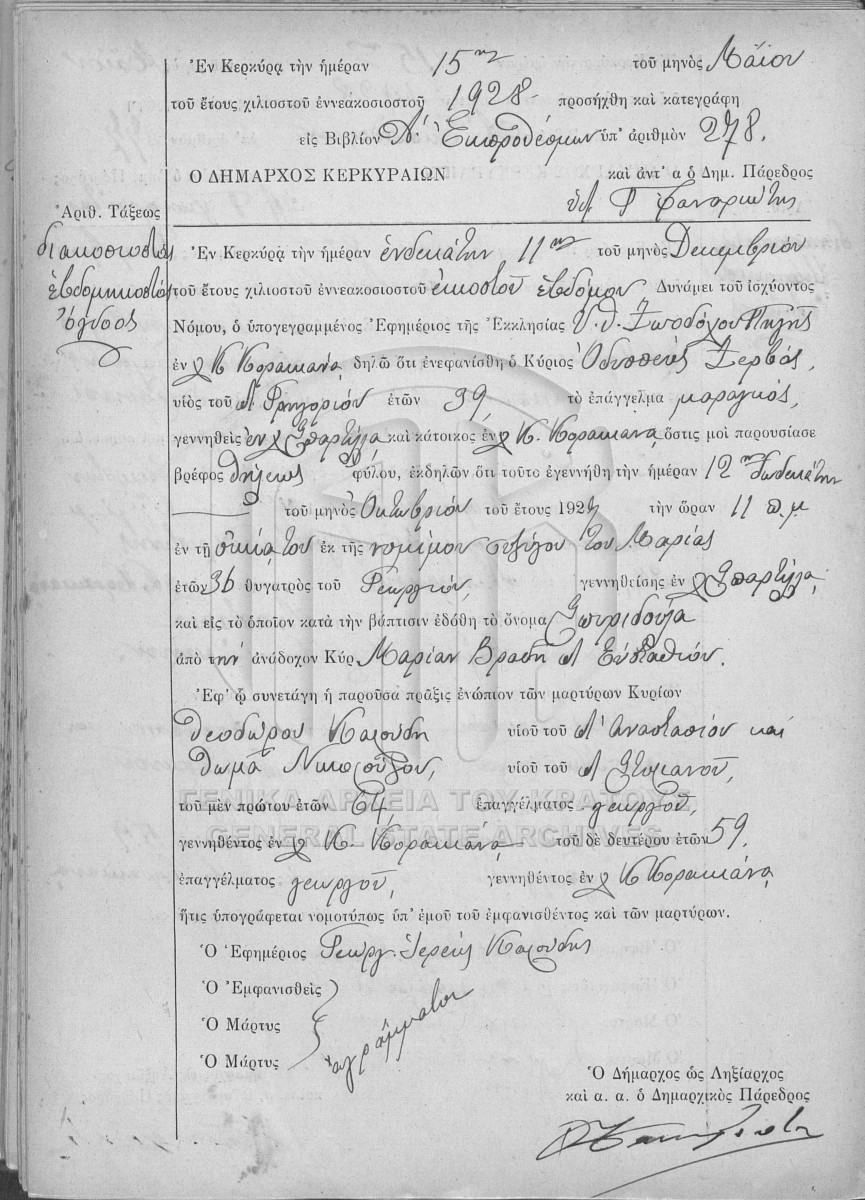 Ἐν Κερκύρᾳ τὴν ἡμέραν 15ην τοῦ μηνὸς Μαΐου
τοῦ ἔτους χιλιοστοῦ ἐννεακοσιοστοῦ 1928 προσήχθη καὶ κατεγράφη
εἰς Βιβλίον Α΄. Ἐκπροθέσμων ὑπ' ἀριθμὸν 278.
Ο ΔΗΜΑΡΧΟΣ ΚΕΡΚΥΡΑΙΩΝ καὶ ἀντ' α ὁ Δημ. Πάρεδρος
Φαναριώτης
Ἀριθ. Τάξεως
διακοσιοστὸς
ἑβδομηκοστὸς
ὄγδοος
Ἐν Κερκύρᾳ τὴν ἡμέραν ἑνδεκάτην 11ην τοῦ μηνὸς Δεκεμβρίου
τοῦ ἔτους χιλιοστοῦ ἐννεακοσιοστοῦ εἰκοστοῦ ἑβδόμου Δυνάμει τοῦ ἰσχύοντος
Νόμου, ὁ ὑπογεγραμμένος Ἐφημέριος τῆς Ἐκκλησίας Υ. Θ. Ζωοδόχου Πηγῆς
ἐν χ Κ Κορακιάνᾳ δηλῶ ὅτι ἐνεφανίσθη ὁ Κύριος Ὀδυσσεὺς Ζερβός,
υἱὸς τοῦ Γρηγορίου ἐτῶν 39, τὸ ἐπάγγελμα μαραγκός,
γεννηθεὶς ἐν χ Σπαρτύλᾳ καὶ κάτοικος ἐν χ Κ. Κορακιάνᾳ ὅστις μοὶ παρουσίασε
βρέφος θήλεως φύλου, ἐκδηλῶν ὅτι τοῦτο ἐγεννήθη τὴν ἡμέραν 12ην δωδεκάτην
τοῦ μηνὸς Ὀκτωβρίου τοῦ ἔτους 1927 τὴν ὥραν 11 π.μ
ἐν τῇ οἰκίᾳ του ἐκ τῆς νομίμου συζύγου του Μαρίας
ἐτῶν 36 θυγατρὸς τοῦ Γεωργίου, γεννηθείσης ἐν χ Σπαρτύλᾳ
καὶ εἰς τὸ ὁποῖον κατὰ τὴν βάπτισιν ἐδόθη τὸ ὄνομα Σπυριδούλα
ἀπὸ τὴν ἀνάδοχον Κύρ Μαρίαν Βραδῆ Εὐσταθίου.
Ἐφ' ᾧ συνετάγη ἡ παροῦσα πρᾶξις ἐνώπιον τῶν μαρτύρων Κυρίων
Θεοδώρου Καλούδη υἱοῦ τοῦ Ἀναστασίου καὶ
Θωμᾶ υἱοῦ τοῦ Στυλιανοῦ,
τοῦ μὲν πρώτου ἐτῶν 64, ἐπαγγέλματος γεωργοῦ,
γεννηθέντος ἐν χ Κ. Κορακιάνᾳ τοῦ δὲ δευτέρου ἐτῶν 59,
ἐπαγγέλματος γεωργοῦ, γεννηθέντος ἐν χ Κ Κορακιάνᾳ
ἥτις ὑπογράφεται νομοτύπως ὑπ' ἐμοῦ τοῦ ἐμφανισθέντος καὶ τῶν μαρτύρων.
Ὁ Ἐφημέριος Γεώργ. Ἱερεὺς Καλούδης
Ὁ Ἐμφανισθεὶς
Ὁ Μάρτυς ἀγράμματοι
Ὁ Μάρτυς
Ὁ Δήμαρχος ὡς Ληξίαρχος
καὶ α. α. ὁ Δημαρχικὸς Πάρεδρος
ΓΕΝΙΚΑ ΑΡΧΕΙΑ ΤΟΥ ΚΡΑΤΟΥΣ
GENERAL STATE ARCHIVES